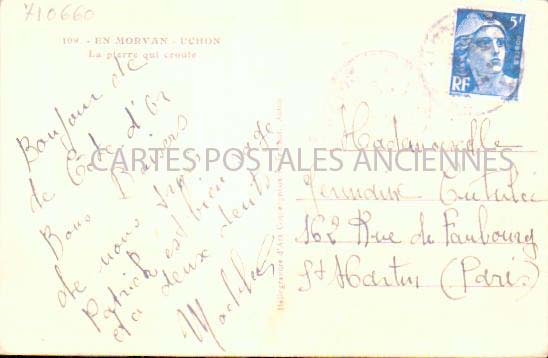 710660
109. - EN MORVAN - UCHON
La pierre qui croule
5F
RF
Bonjour de
de Côte d'Or
Bons Baisers
de nous
Patrick est bien sage
et a deux dents
Mademoiselle
Germaine
162 Rue du Faubourg
St Martin (Paris)
CARTES POSTALES ANCIENNES